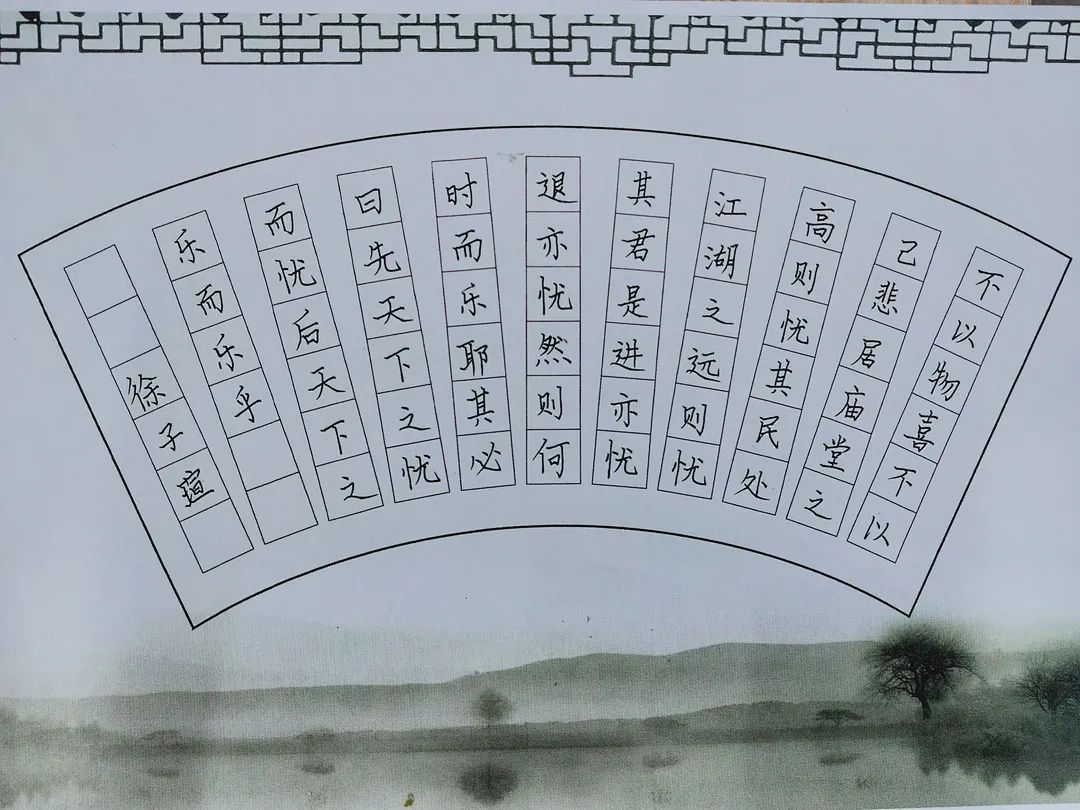 不以物喜不以
己悲居庙堂之
高则忧其民处
江湖之远则忧
其君是进亦忧
退亦忧然则何
时而乐耶其必
曰先天下之忧
而忧后天下之
乐而乐乎
徐子瑄